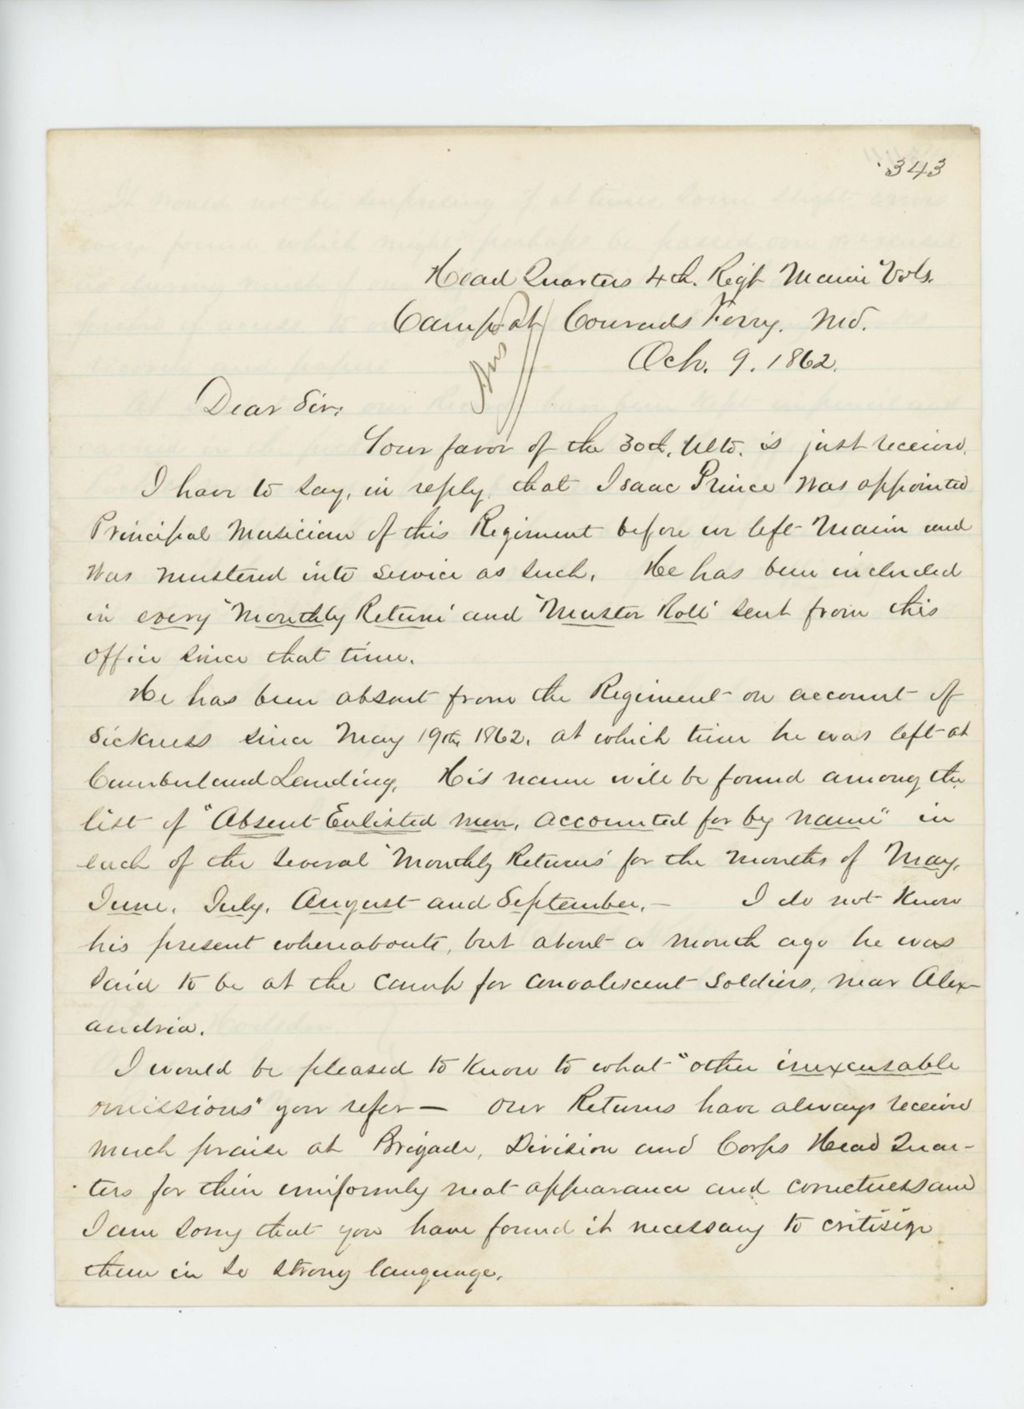 343
Head Quarters 4th. Regt Maine Vols.
Camp at Conrads Ferry. Md.
Oct. 9. 1862.
Ans
Dear Sir:
Your favor of the 30th. Ulto. is just received.
I have to say, in reply, that Isaac Prince was appointed
Principal Musician of this Regiment before we left Maine and
was mustered into service as such. He has been included
in every "Monthly Return" and "Muster Roll" sent from this
office since that time.
He has been absent from the Regiment on account of
sickness since May 19th, 1862. at which time he was left at
Cumberland Landing. His name will be found among the
list of "Absent Enlisted men, accounted for by name" in
each of the several "Monthly Returns" for the months of May,
June, July, August and September. — I do not know
his present whereabouts, but about a month ago he was
said to be at the camp for convalescent soldiers, near Alex-
andria.
I would be pleased to know to what "other inexcusable
omissions" you refer — Our Returns have always received
much praise at Brigade, Division and Corps Head Quar-
ters for their uniformly neat appearance and correctness and
I am sorry that you have found it necessary to critisize
them in so strong language.